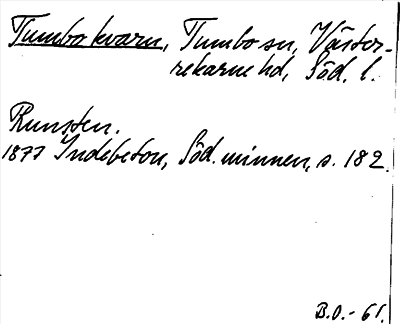 Tumbo kvarn, Tumbo sn, Väster-
rekarne hd, Söd. l.
Runsten.
1877 Indebetou, Söd. minnen, s. 182.
B.O. - 61.